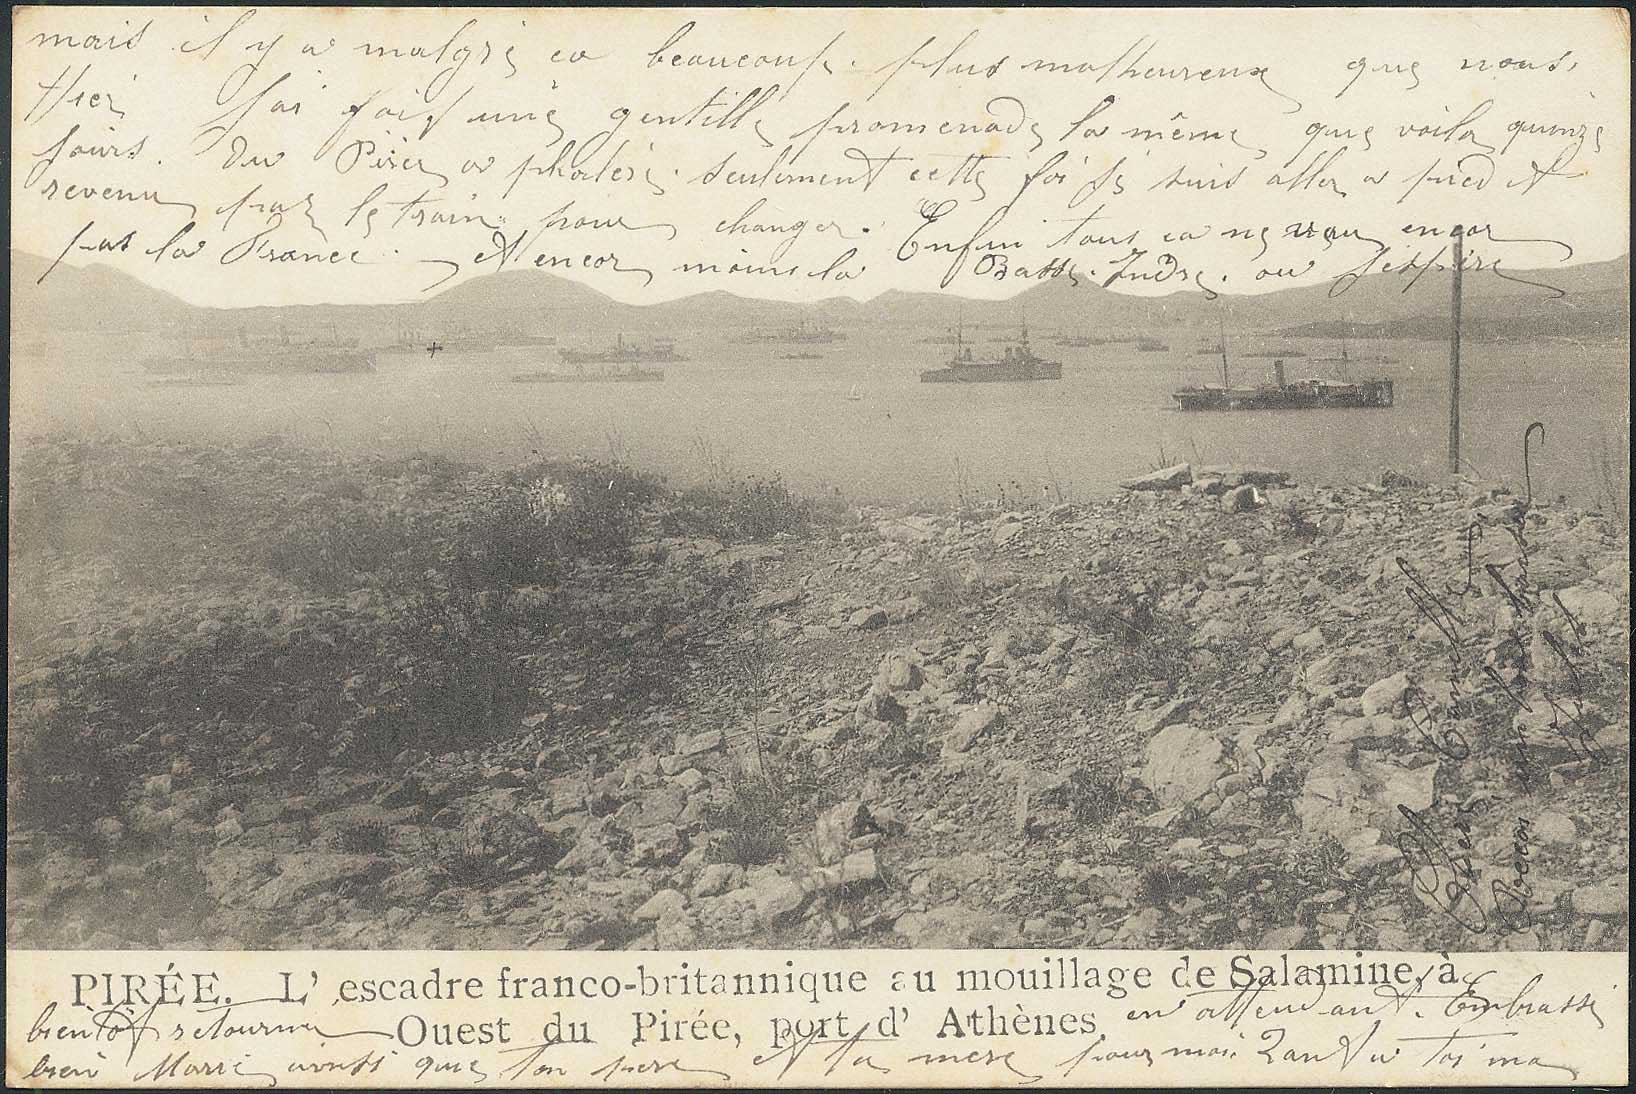 mais il y a malgré ca beaucoup plus malheureux que nous.
Hier j'ai fait une gentille promenade la même que voila quinze
jours. Du Pirée a phalère. seulement cette foi je suis aller a pied et
revenu par le train pour changer. Enfin tous ca ne vau encor
pas la France. et encor moins la Basse-Indre. ou j'espire
PIRÉE. L' escadre franco-britannique au mouillage de Salamine, à
Ouest du Pirée, port d' Athènes
bientôt retourner en attendant. Embrasse
bien Marie ainsi que ton père et ta mere pour moi. Quant a toi ma
Chere Camille
recois un bon baiser